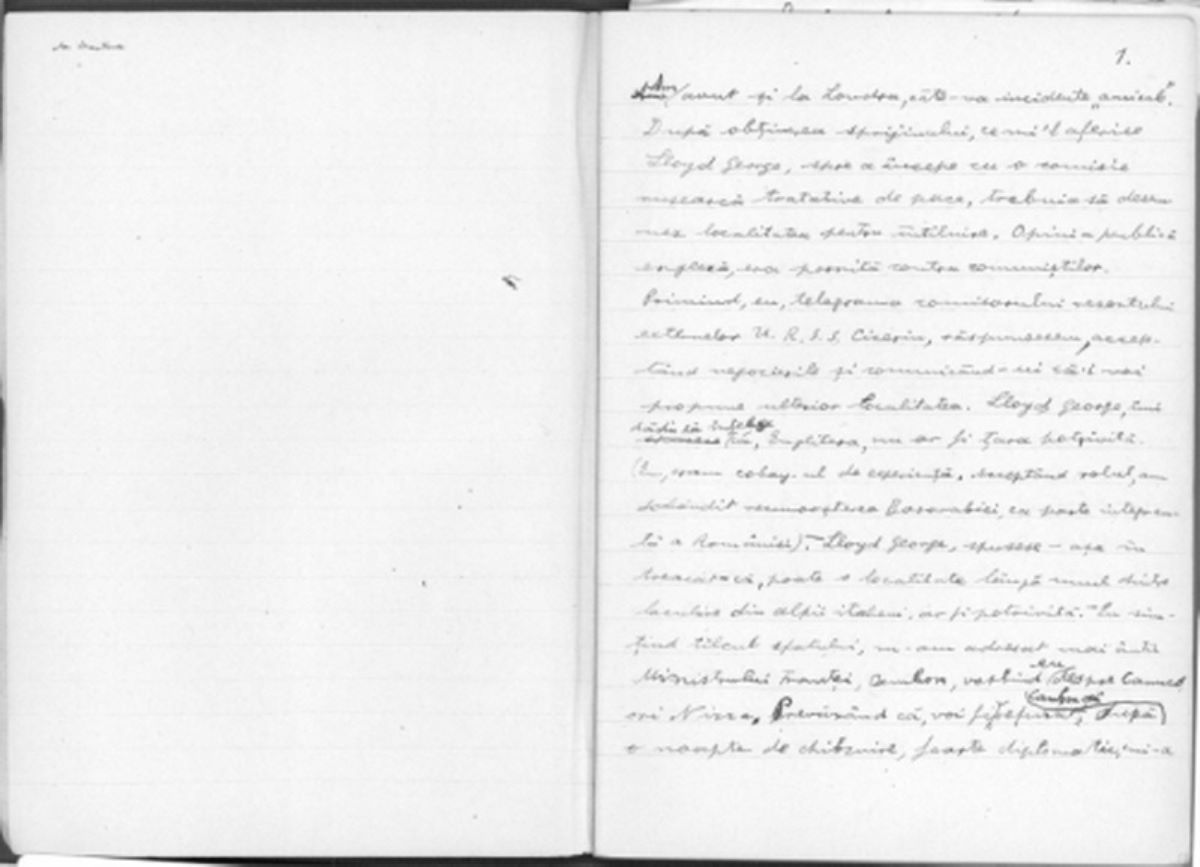 1.
Am avut și la Londra, câte-va incidente „amicale".
După obținerea sprijinului, ce mi'l oferise
Lloyd George, spre a începe cu o comisie
rusească tratative de pace, trebuia să desem
nez localitatea pentru întîlnire. Opinia publică
engleză, era pornită contra comuniștilor.
Primind, eu, telegrama comisarului resortului
externelor U. R. S. S. Cicerin, răspunsesem, accep-
tând negocierile și comunicând-i că-i voi
propune ulterior localitatea. Lloyd George, îmi
dădu să înțeleg
că, Englitera, nu ar fi țara potrivită.
(Eu, eram cobay-ul de experiență. Acceptând rolul, am
dobândit recunoașterea Basarabiei, ca parte integran-
tă a României). Lloyd George, spusese - așa în
treacăt, poate o localitate lângă unul dintre
lacurile din alpii italieni, ar fi potrivită." Eu sim-
țind tilcul, m-am adresat mai întîi
Ministrului Franței, Cambon, vorbind despre Cannes
eu
ori Nizza. Prevăzând că, voi fi refuzat, după
Cambon
o noapte de chibzuire, foarte diplomatic, mi-a